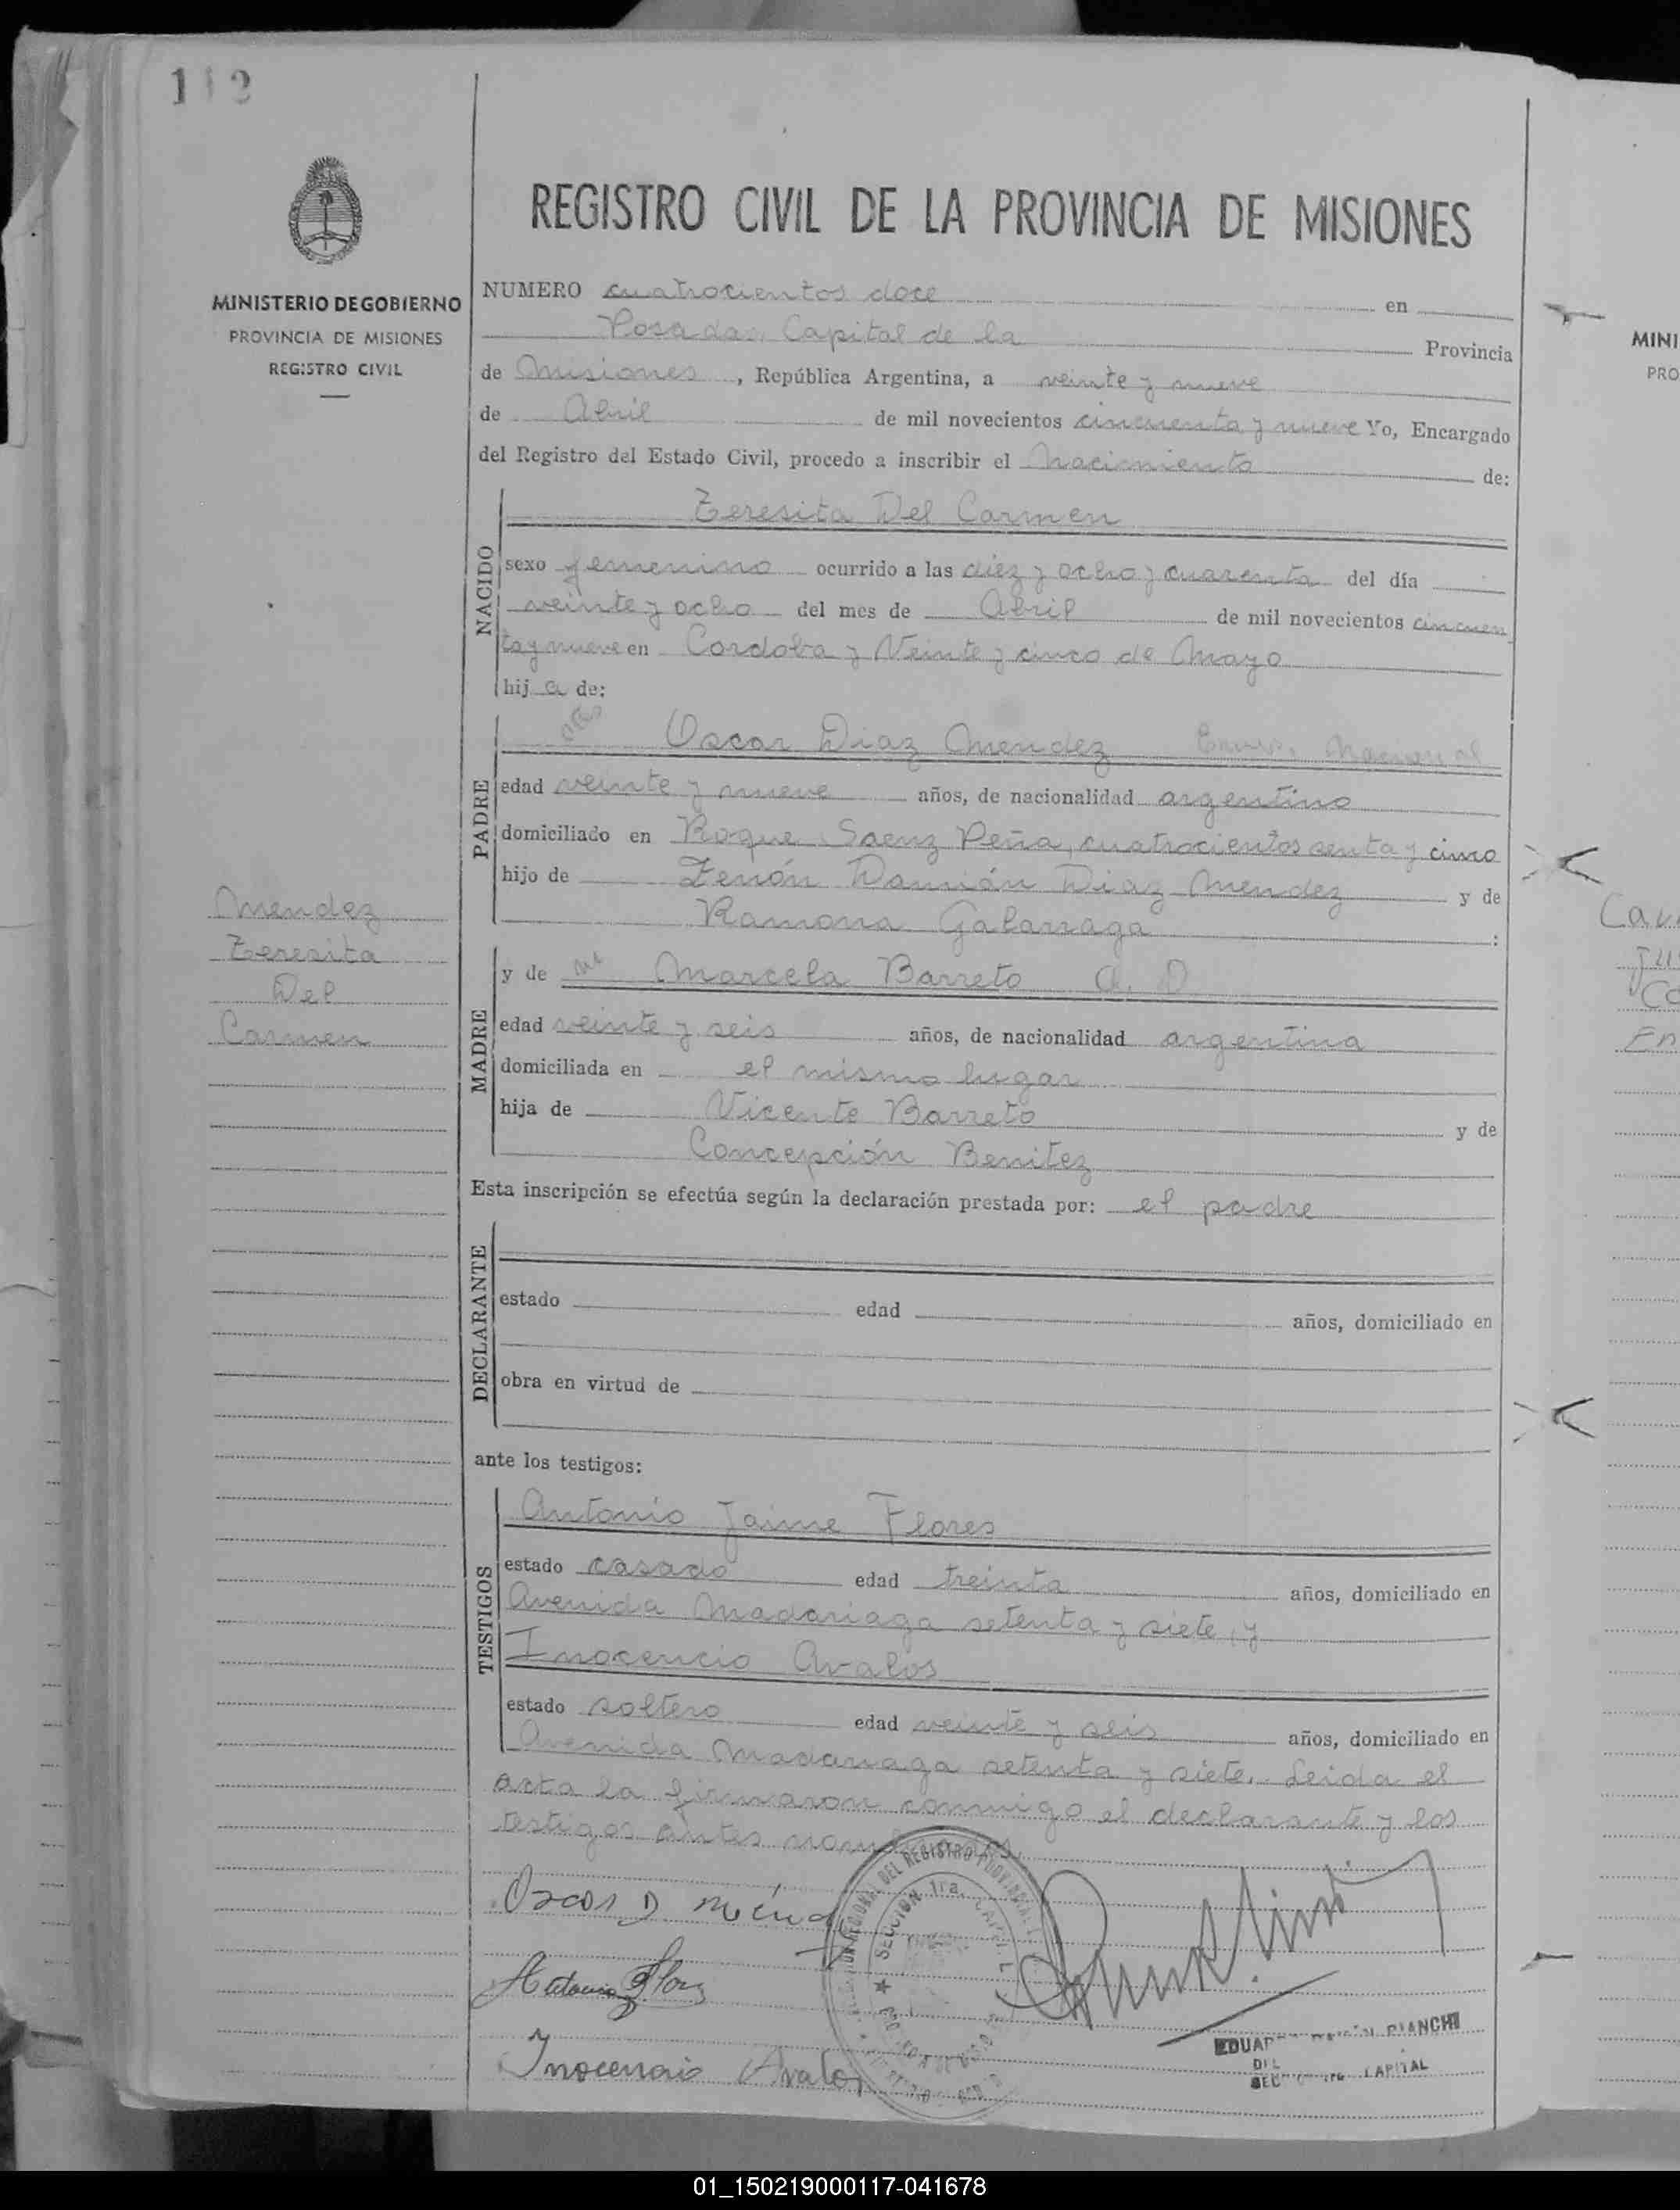 112
REGISTRO CIVIL DE LA PROVINCIA DE MISIONES
MINISTERIO DE GOBIERNO
PROVINCIA DE MISIONES
REGISTRO CIVIL
NUMERO cuatrocientos doce en
Posadas Capital de la Provincia
de Misiones, República Argentina, a veinte y nueve
de Abril de mil novecientos cincuenta y nueve Yo, Encargado
del Registro del Estado Civil, procedo a inscribir el Nacimiento de:
NACIDO
Teresita Del Carmen
sexo femenino ocurrido a las diez y ocho y cuarenta del día
veinte y ocho del mes de Abril de mil novecientos cincuen
ta y nueve en Cordoba y Veinte y cinco de Mayo
hija de:
PADRE
Oscar Diaz Mendez
edad veinte y nueve años, de nacionalidad argentino
domiciliado en Roque Saenz Peña, cuatrocientos senta y cinco
hijo de Zenón Damián Diaz Mendez y de
Ramona Galarraga :
MADRE
y de Marcela Barreto
edad veinte y seis años, de nacionalidad argentina
domiciliada en el mismo lugar
hija de Vicente Barreto y de
Concepción Benitez
Mendez
Teresita
Del
Carmen
Esta inscripción se efectúa según la declaración prestada por: el padre
DECLARANTE
estado edad años, domiciliado en
obra en virtud de
ante los testigos:
TESTIGOS
Antonio Jaime Flores
estado casado edad treinta años, domiciliado en
Avenida Madariaga setenta y siete, y
Inocencio Avalos
estado soltero edad veinte y seis años, domiciliado en
Avenida Madariaga setenta y siete. Leida el
acta la firmaron conmigo el declarante y los
testigos antes nombrados.
Oscar D
Antonio Flores
Inocencio Avalos
SECCION 1ra.
BIANCHI
CAPITAL
MINI
PRO
01_150219000117-041678